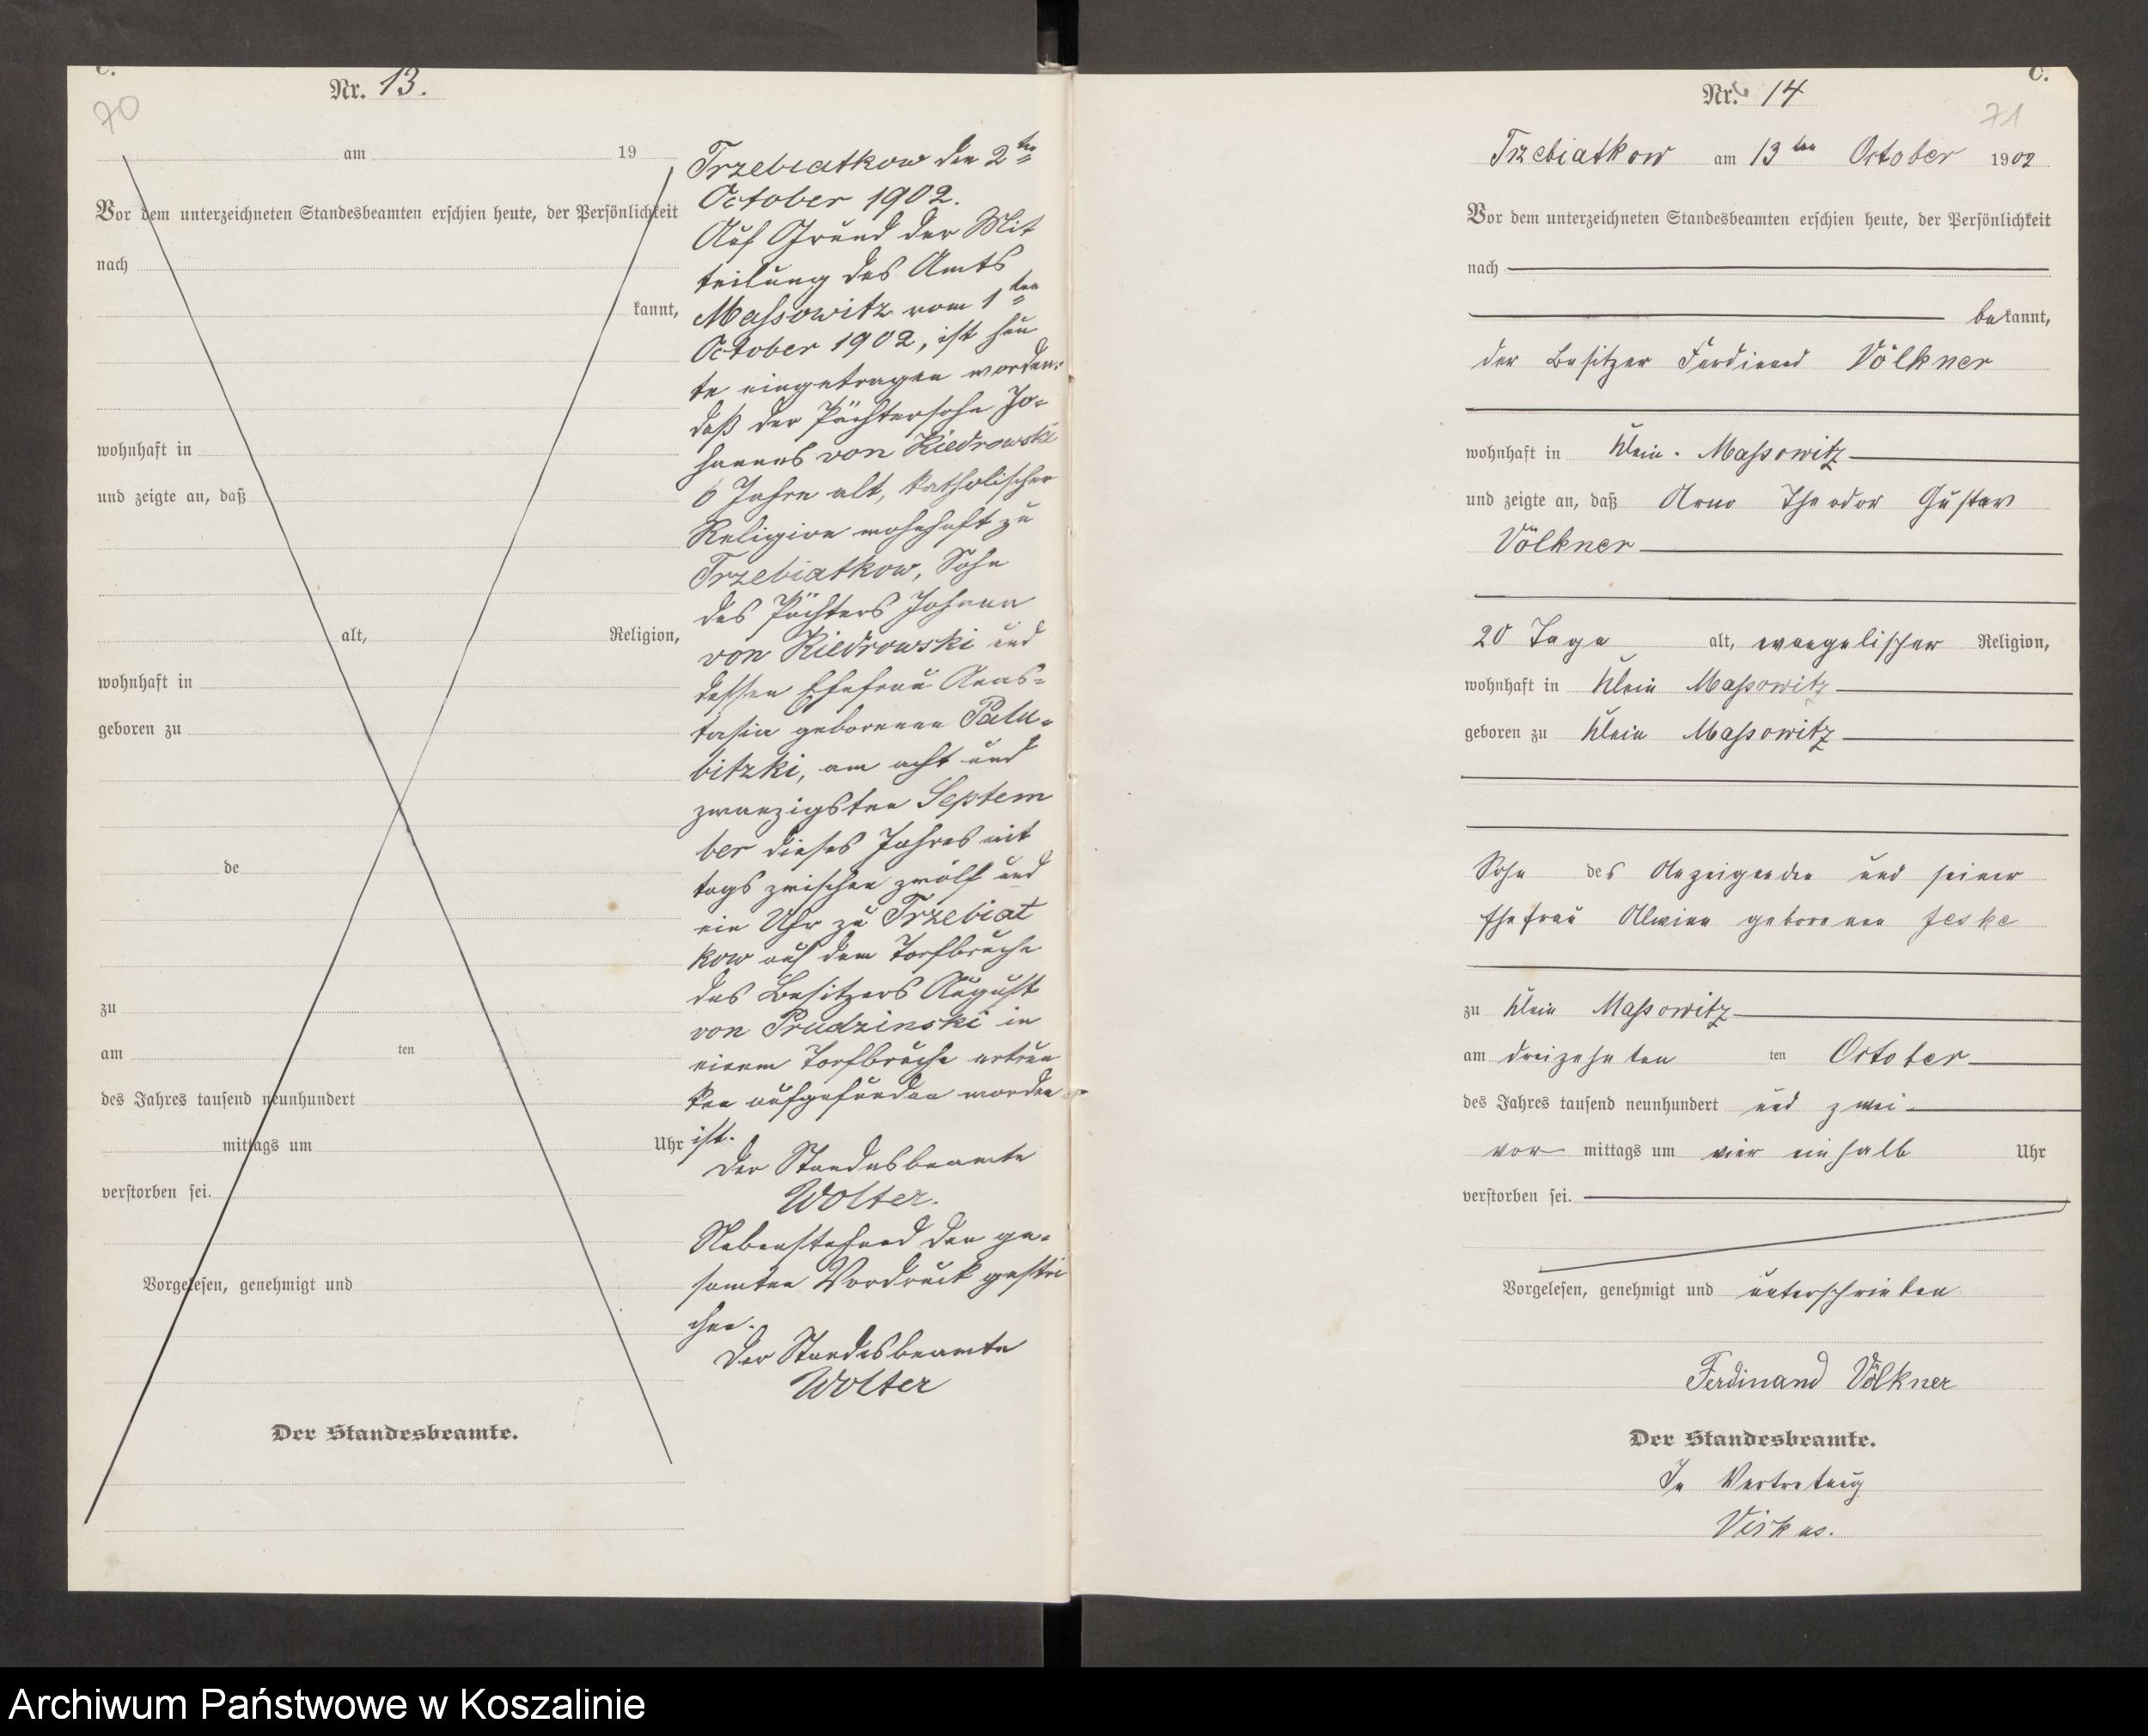 C.
Nr. 13.
70
am 19
Vor dem unterzeichneten Standesbeamten erschien heute, der Persönlichkeit
nach
kannt,
wohnhaft in
und zeigte an, daß
alt, Religion,
wohnhaft in
geboren zu
de
zu
am ten
des Jahres tausend neunhundert
mittags um Uhr
verstorben sei.
Vorgelesen, genehmigt und
Der Standesbeamte.
Trzebiatkow den 2ten
October 1902.
Auf Grund der Mit
teilung des Amts
Massowitz vom 1ten
October 1902, ist heu
te eingetragen worden:
daß der Pächtersohn Jo-
hannes von Kiedrowski
6 Jahre alt, katholischer
Religion wohnhaft zu
Trzebiatkow, Sohn
des Pächters Johann
von Kiedrowski und
dessen Ehefrau Anas-
tasia geborenen Palu-
bitzki, am acht und
zwanzigsten Septem
ber dieses Jahres mit
tags zwischen zwölf und
ein Uhr zu Trzebiat
kow auf dem Torfbruche
des Besitzers August
von Prudzinski in
einem Torfbruche ertrun
ken aufgefunden worden
ist.
Der Standesbeamte
Wolter.
Nebenstehend den ge-
samten Vordruck gestri
chen.
Der Standesbeamte
Wolter
C.
Nr. 14
71
Trzebiatkow am 13ten October 1902
Vor dem unterzeichneten Standesbeamten erschien heute, der Persönlichkeit
nach
bekannt,
der Besitzer Ferdinand Völkner
wohnhaft in Klein-Massowitz
und zeigte an, daß Arno Theodor Gustav
Völkner
20 Tage alt, evangelischer Religion,
wohnhaft in Klein Massowitz
geboren zu Klein Massowitz
Sohn des Anzeigenden und seiner
Ehefrau Alwine geborenen Jeske
zu Klein Massowitz
am dreizehnten ten October
des Jahres tausend neunhundert und zwei
vor mittags um vier einhalb Uhr
verstorben sei.
Vorgelesen, genehmigt und unterschrieben
Ferdinand Völkner
Der Standesbeamte.
In Vertretung
Virkus.
Archiwum Państwowe w Koszalinie